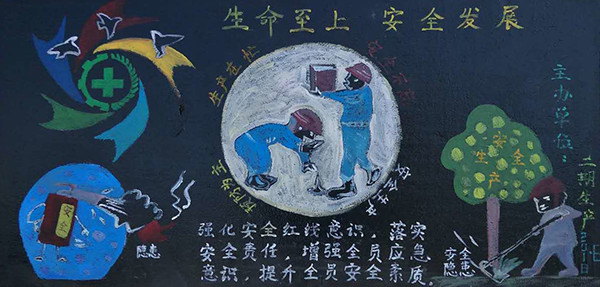 生命至上 安全发展
主办单位：
二期生产
安全生产
安全
隐患
安全生产
强化安全红线意识，落实
安全责任，增强全员应急
意识，提升全员安全素质。
安全
隐患